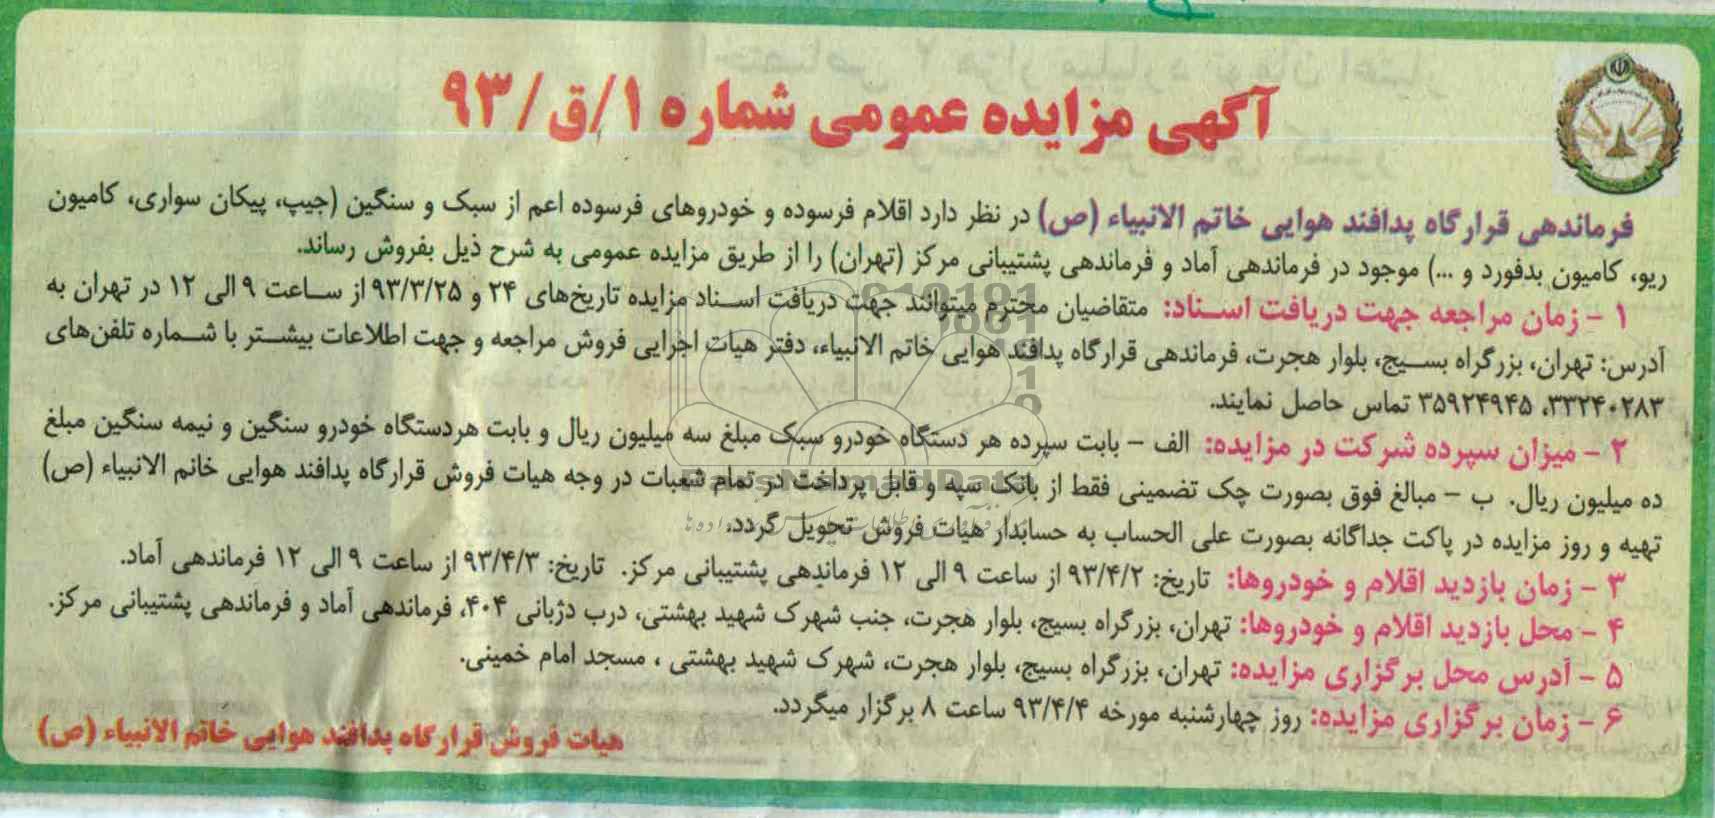 آگهی مزایده عمومی شماره ۱/ق/۹۳
فرماندهی قرارگاه پدافند هوایی خاتم الانبیاء (ص) در نظر دارد اقلام فرسوده و خودروهای فرسوده اعم از سبک و سنگین (جیپ، پیکان سواری، کامیون
ریو، کامیون بدفورد و ...) موجود در فرماندهی آماد و فرماندهی پشتیبانی مرکز (تهران) را از طریق مزایده عمومی به شرح ذیل بفروش رساند.
۱ - زمان مراجعه جهت دریافت اسناد: متقاضیان محترم میتوانند جهت دریافت اسناد مزایده تاریخ‌های ۲۴ و ۹۳/۳/۲۵ از ساعت ۹ الی ۱۲ در تهران به
آدرس: تهران، بزرگراه بسیج، بلوار هجرت، فرماندهی قرارگاه پدافند هوایی خاتم الانبیاء، دفتر هیات اجرایی فروش مراجعه و جهت اطلاعات بیشتر با شماره تلفن‌های
۳۳۲۴۰۲۸۳، ۳۵۹۲۴۹۴۵ تماس حاصل نمایند.
۲ - میزان سپرده شرکت در مزایده: الف - بابت سپرده هر دستگاه خودرو سبک مبلغ سه میلیون ریال و بابت هردستگاه خودرو سنگین و نیمه سنگین مبلغ
ده میلیون ریال. ب - مبالغ فوق بصورت چک تضمینی فقط از بانک سپه و قابل پرداخت در تمام شعبات در وجه هیات فروش قرارگاه پدافند هوایی خاتم الانبیاء (ص)
تهیه و روز مزایده در پاکت جداگانه بصورت علی الحساب به حسابدار هیات فروش تحویل گردد.
۳ - زمان بازدید اقلام و خودروها: تاریخ: ۹۳/۴/۲ از ساعت ۹ الی ۱۲ فرماندهی پشتیبانی مرکز. تاریخ: ۹۳/۴/۳ از ساعت ۹ الی ۱۲ فرماندهی آماد.
۴ - محل بازدید اقلام و خودروها: تهران، بزرگراه بسیج، بلوار هجرت، جنب شهرک شهید بهشتی، درب دژبانی ۴۰۴، فرماندهی آماد و فرماندهی پشتیبانی مرکز.
۵ - آدرس محل برگزاری مزایده: تهران، بزرگراه بسیج، بلوار هجرت، شهرک شهید بهشتی ، مسجد امام خمینی.
۶ - زمان برگزاری مزایده: روز چهارشنبه مورخه ۹۳/۴/۴ ساعت ۸ برگزار میگردد.
هیات فروش قرارگاه پدافند هوایی خاتم الانبیاء (ص)
ParsNamadData